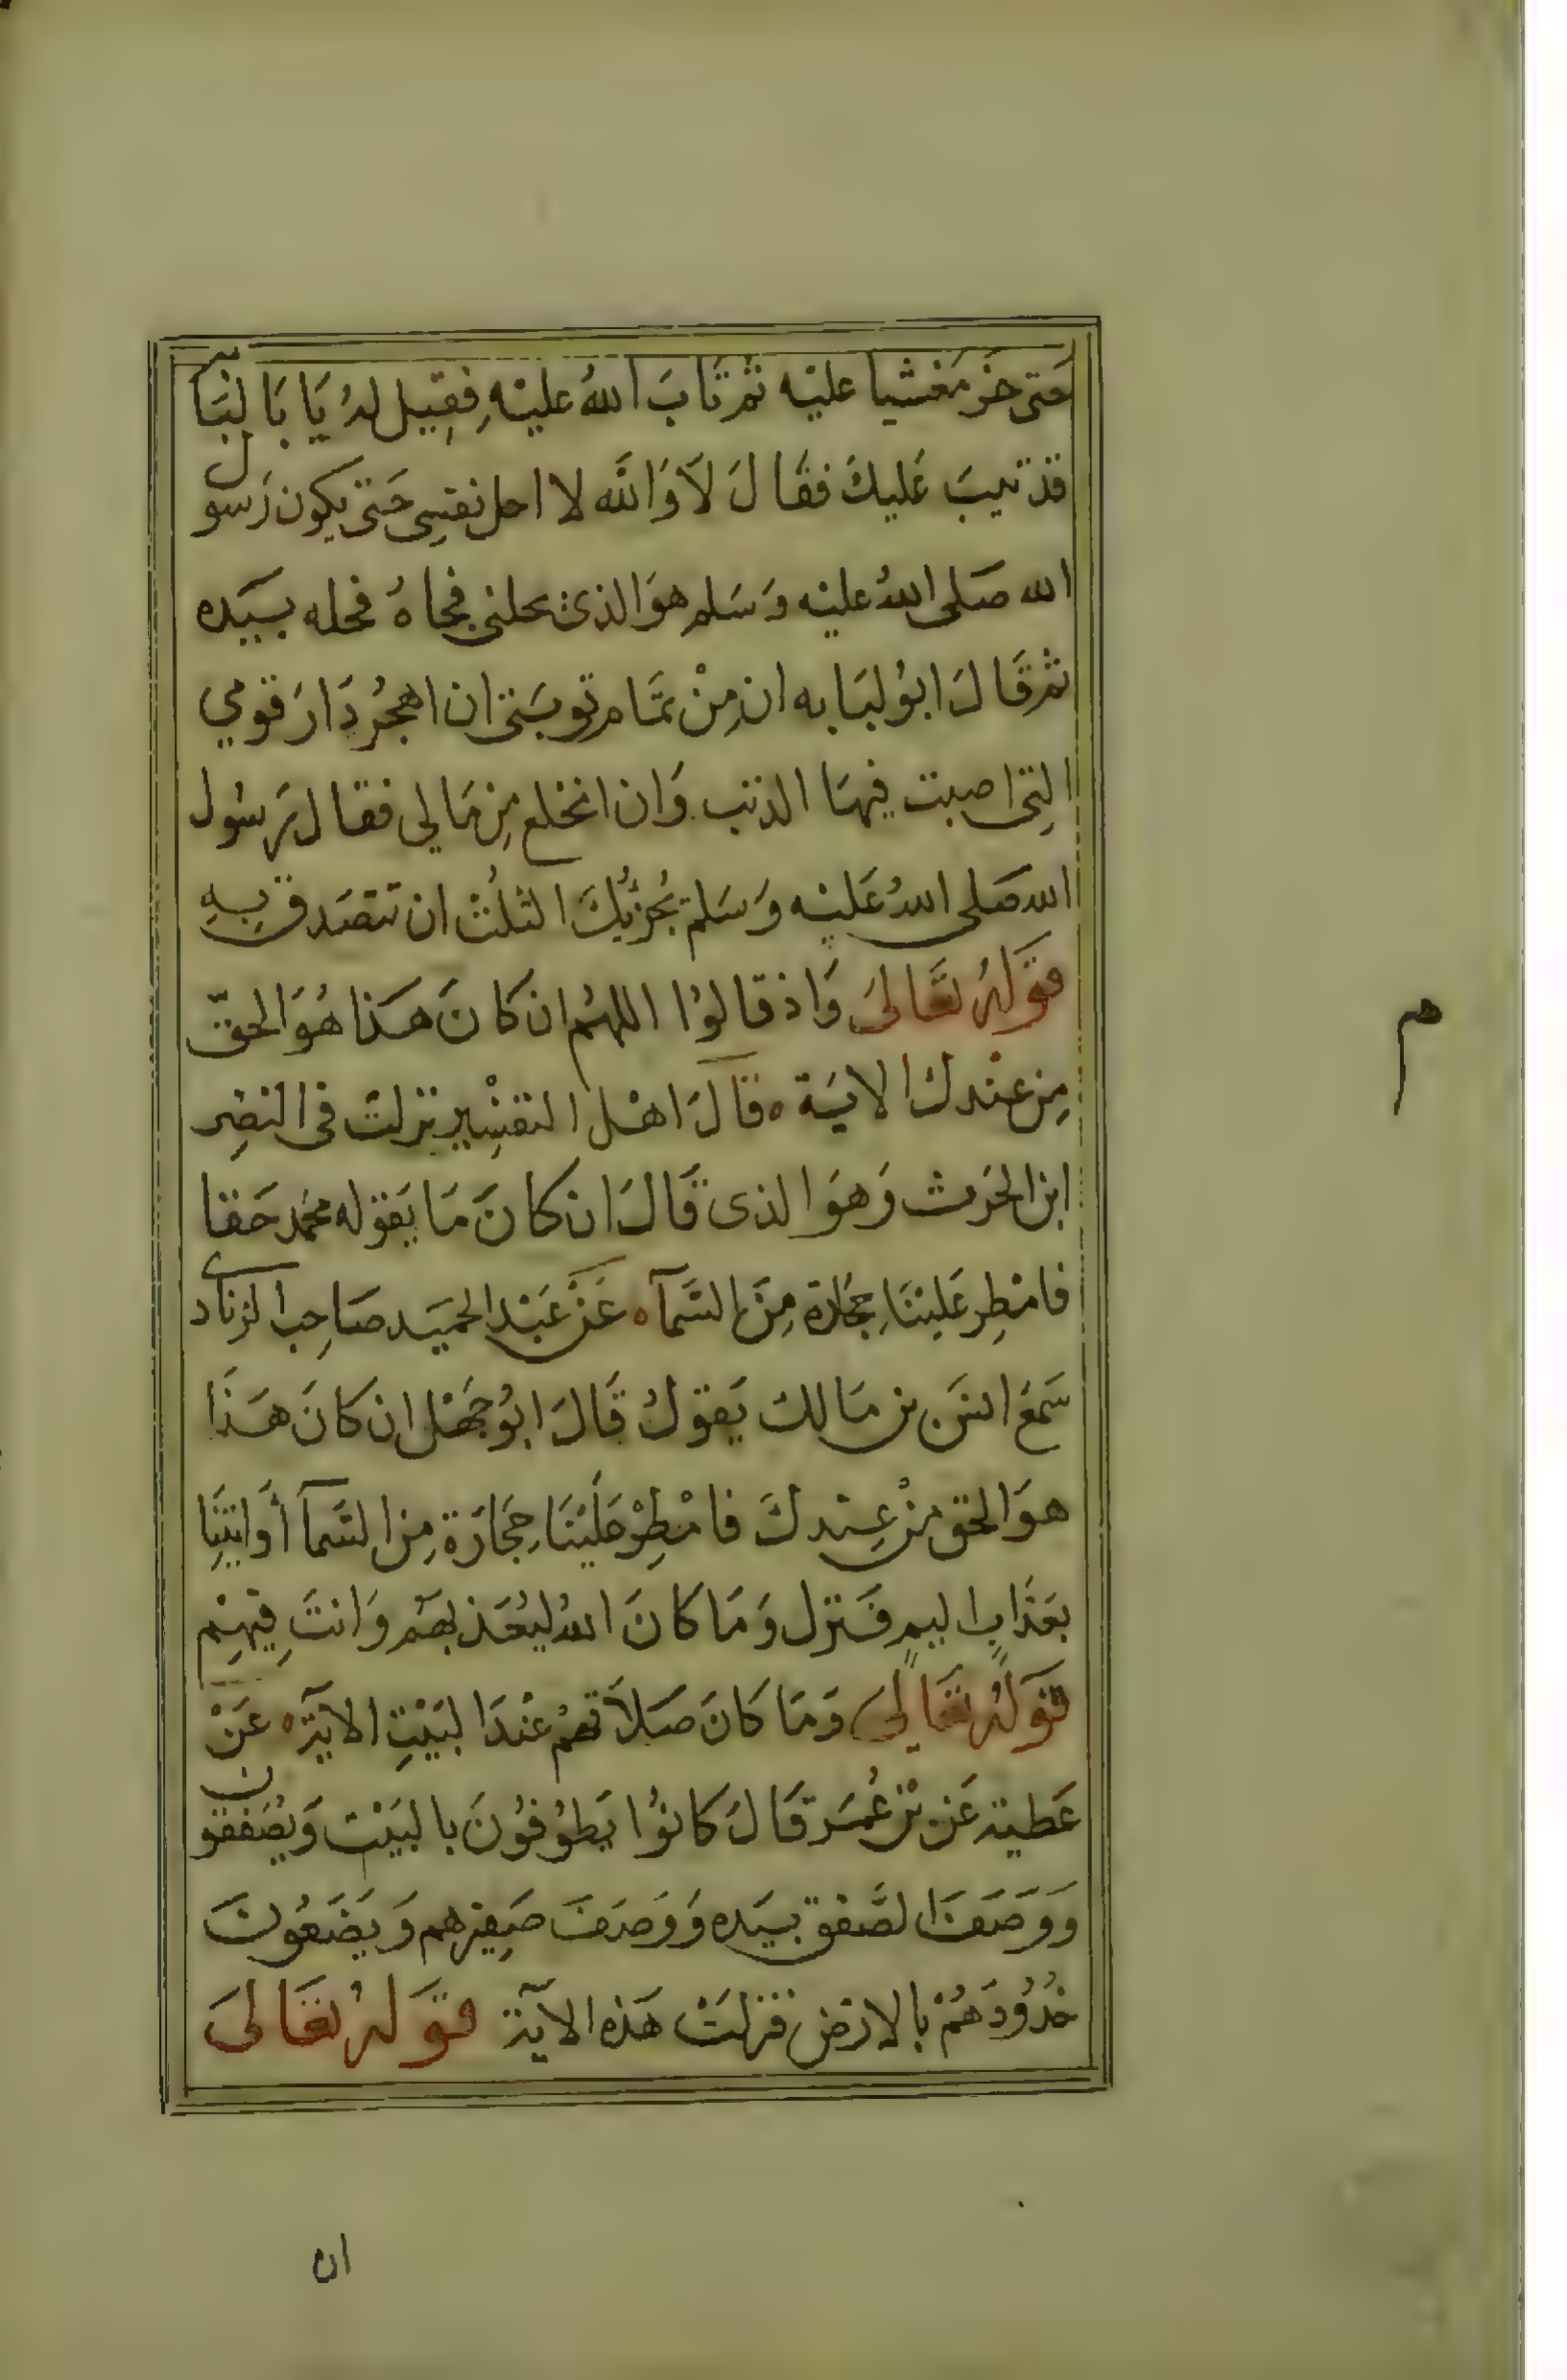 حَتى خَر مَغشيا عليْه ثم تَابَ اللهُ عليْهِ فقِيل لهُ يَا بَا لبَابَه
قد تيبَ عَليكَ فقَالَ لَا وَاللَّه لا احل نفسِى حَتى يكون رَسول
الله صَلى اللهُ عليْه وَسَلم هوَ الذى يحلنى فجاهُ فحله بيَده
ثم قَالَ ابوُ لبَابه ان مِنْ تمَام توبَتى ان اهجُر دَارَ قومي
التِى اصبت فيهَا الذنب وَان انخلع مِن مَالي فقال رَسُول
الله صَلى اللهُ عَليْه وَسَلم يُجزئُكَ الثلُثْ ان تتصَدق بِهِ
قوَلهُ تعَالىَ وَاذ قالوُا اللهُم ان كَانَ هَذا هُوَ الحقّ
مِن عنْدك الايَة ه قالَ اهْل التفسِير نزلتْ فى النضِر
ابن الحَرث وَهوَ الذى قَالَ ان كانَ مَا يَقوله محمد حَقا
فامْطِر عَليْنَا حِجَارة مِنَ السَّمآ ه عَنْ عَبْد الحميَد صَاحِب الزنادى
سَمعَ انسَ بن مَالك يَقولُ قَالَ ابوُ جَهْل ان كانَ هَذَا
هوَ الحق مِنْ عِندكَ فامْطِرْ عَليْنَا حِجَارَة مِن السَّمآ أَو ائتِنَا
بعَذَابٍ اليمٍ فَنزل وَمَا كانَ اللهُ ليُعَذبهَم وَانتَ فِيهِم
قوَلهُ تعَالىَ وَمَا كانَ صَلَاتهمُ عنْدَ البَيْتِ الايَة ه عَنْ
عَطية عَن بْن عُمَر قَالَ كانوُا يَطوُفوُنَ بالبَيْت وَيُصَفقون
وَوَصَفَ الصَّفق بيَده وَوَصَفَ صَفِيرهم وَيَضَعُونَ
خُدُودَهُمْ بالارْض فنزلتْ هَذه الآيَة قوَلهُ تعَالىَ
ان